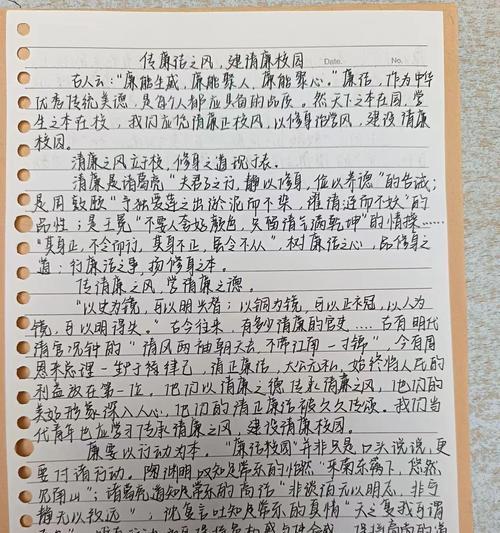 传廉洁之风，建清廉校园
Date.
No.
古人云：“廉能生威，廉能聚人，廉能聚心。”廉洁，作为中华
优秀传统美德，是每个人都应具备的品质。然天下之本在国，学
生之本在校，我们应倡清廉正校风，以修身治学风，建设清廉
校园。
清廉之风立于校，修身之道现于表。
清廉是诸葛亮“夫君子之行，静以修身，俭以养德”的告诫；
是周敦颐“予独爱莲之出淤泥而不染，濯清涟而不妖”的
品性；是王冕“不要人夸好颜色，只留清气满乾坤”的情操……
“其身正，不令而行，其身不正，虽令不从”，树廉洁之心，品修身之
道；行廉洁之事，扬修身之本。
传清廉之风，学清廉之德。
“以史为镜，可以明兴替；以铜为镜，可以正衣冠，以人为
镜，可以明得失。”古今往来，有多少清廉的官吏……古有明代
清官况钟的“清风两袖朝天去，不带江南一寸锦”，今有周
恩来总理一生严于律己，清正廉洁，大公无私，始终将人民的
利益放在第一位，他们以清廉之德传承清廉之风，他们的
美好形象深入人心，他们的清正廉洁被久久传颂。我们当
代青年也应学习传承清廉之风，建设清廉校园。
廉要以行动为本。“廉洁校园”并非只是口头说说，更
要付诸行动。陶渊明叹知足常乐的怡然“采菊东篱下，悠然
见南山”；诸葛亮道知足常乐的高洁“非淡泊无以明志，非宁
静无以致远”；沈复言吐知足常乐的真情“